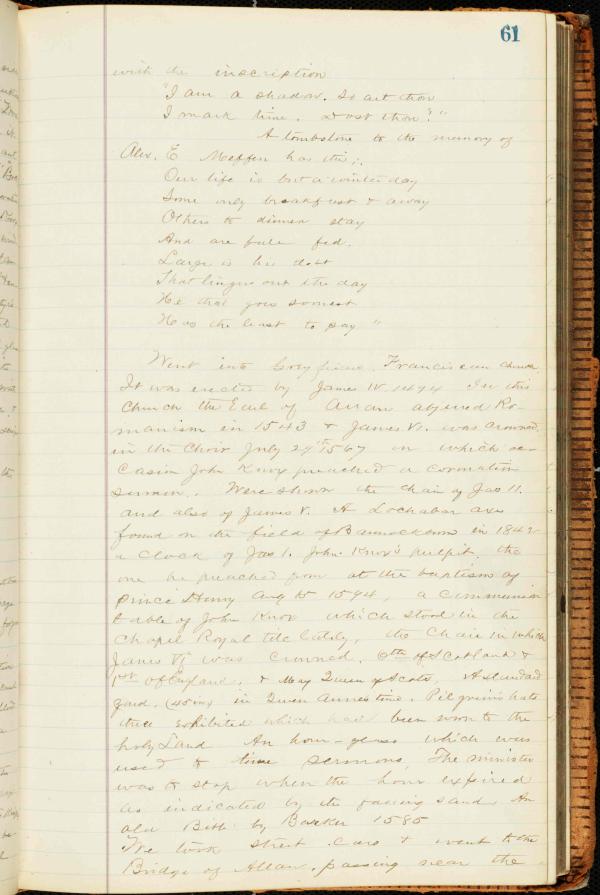 61
with the inscription
"I am a shadow. So art thou
I mark time. Dost thou?"
A tombstone to the memory of
Alex. E Meffen has this;.
Our life is but a winter day
Some only breakfast & away
Others to dinner stay
And are full fed.
Large is his debt
That lingers out the day
He that goes soonest
Has the least to pay"
Went into Greyfriars Franciscan Church.
It was erected by James IV 1494 In this
Church the Earl of Arran abjured Ro-
manism in 1543 & James VI. was crowned
in the Choir July 29th 1567 on which oc-
casion John Knox preached a coronation
sermon. Were shown the chair of Jas II.
and also of James V. A Lochabar axe
found on the field of Bannockburn in 1842
a clock of Jas I. John Knox's pulpit, the
one he preached from at the baptism of
Prince Henry Aug 15 1594, a communion
table of John Knox which stood in the
Chapel Royal till lately, the Chair in which
James VI was crowned. 6th of Scotland &
1st of England. & Mary Queen of Scots, A standard
yard, (45 in) in Queen Annes time. Pilgrim's hats
were exhibited which had been worn to the
holy Land An hour-glass which was
used to time sermons, The minister
was to stop when the hour expired
as indicated by the passing sand. An
old Bible by Barker 1585
We took street cars & went to the
Bridge of Allan. passing near the